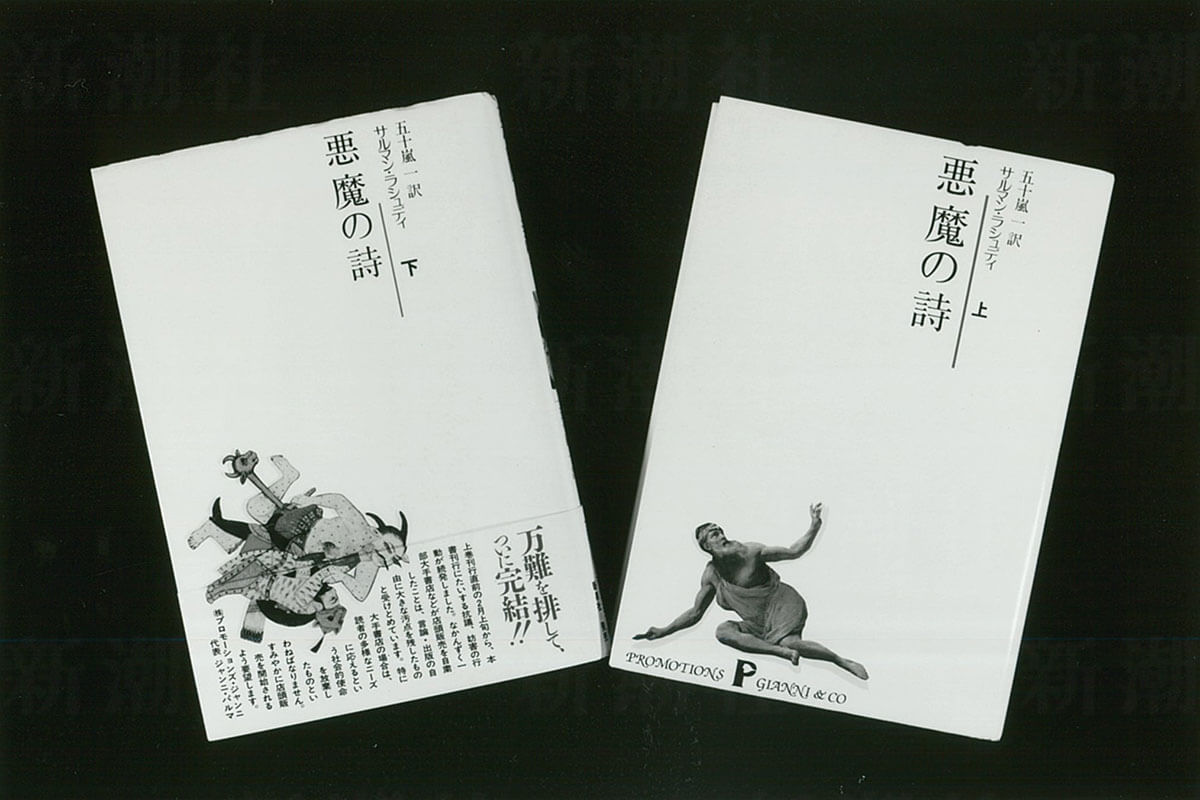 五十嵐一 訳
サルマン・ラシュディ
悪魔の詩
下
万難を排して、
ついに完結!!
上巻刊行直前の2月上旬から、本
書刊行にたいする抗議、妨害の行
動が続発しました。なかんずく一
部大手書店などが店頭販売を自粛
したことは、言論・出版の自
由に大きな汚点を残したもの
と受けとめています。特に
大手書店の場合は、
読者の多様なニーズ
に応えるとい
う社会的使命
を放棄し
たものとい
わねばなりません。
すみやかに店頭販
売を開始される
よう要望します。
㈱プロモーションズ・ジャンニ
代表 ジャンニ・パルマ
五十嵐一 訳
サルマン・ラシュディ
悪魔の詩
上
PROMOTIONS P GIANNI & CO
新潮社
新潮社
新潮
新潮
新潮